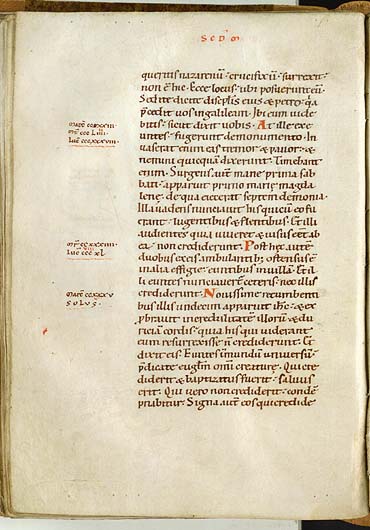 SCD̄ M̄
queritis nazarenū crucifixū. surrexit
non ē hic. Ecce locus ubi posuerunt eū.
Sed ite dicite discipl̄is eius & petro. q̄a
p̄cedit vos in galileam. Ibi eum vide
bitis. sicut dixit vobis. At ille exe
untes. fugerunt de monumento. In
vaserat enim eas tremor & pavor. &
nemini quicquā dixerunt. Timebant
enim. Surgens aut̄ mane prima sab
bati. apparuit primo marie magda
lene. de qua eiecerat septem demonia.
Illa vadens nunciavit his qui cū eo fu
erant. lugentibus & flentibus. Et illi
audientes quia viveret & visus eēt ab
ea. non crediderunt. Post hec autē
duobus ex eis ambulantib; ostensus ē
in alia effigie. euntibus in villā. Et il
li euntes nunciaver̄ ceteris. nec illis
crediderunt. Novissime recumbenti
bus illis undecim apparuit ih̄c. & ex
probravit incredulitatē illorū & du
riciam cordis. quia his qui viderant
eum resurrexisse. n̄ crediderunt. Et
dixit eis. Euntes in mundū universū.
p̄dicate eugl̄m omni creature. Qui cre
diderit & baptizatus fuerit. salvus
erit. Qui vero non crediderit. condē
pnabitur. Signa aut̄ eos qui credide
MATH̄ CCCLII